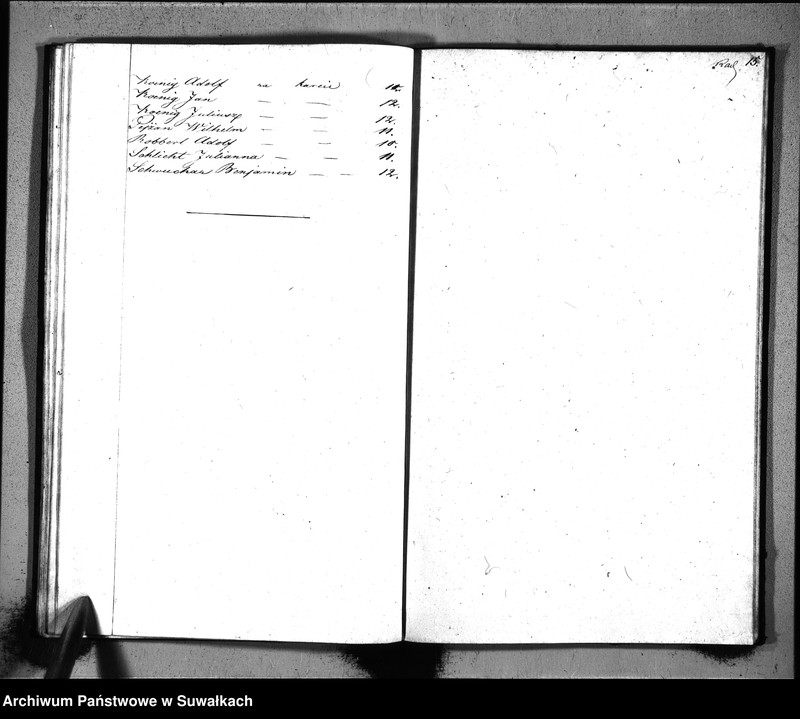 Koenig Adolf na karcie 10.
Koenig Jan — — 12.
Koenig Juliusz — — 12.
Wilhelm — — 11.
Robbert Adolf — — 10.
Schlicht Julianna — — 11.
Benjamin — — 12.
15.
Archiwum Państwowe w Suwałkach